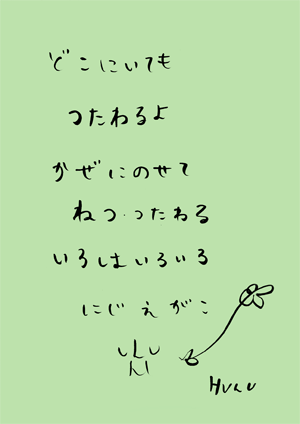 どこにいても
つたわるよ
かぜにのせて
ねつ・つたわる
いろはいろいろ
にじえがこ